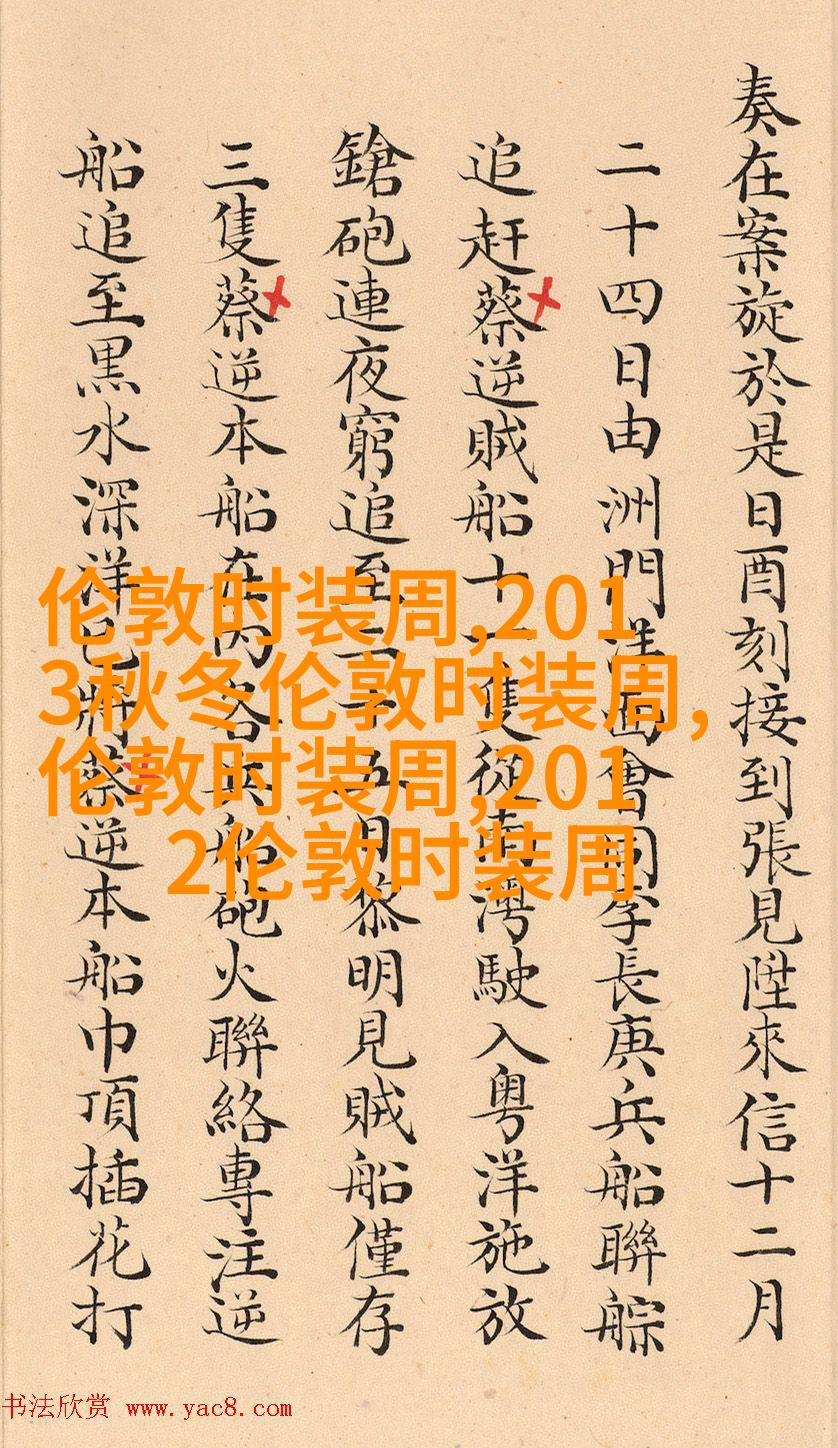 奏在案旋於是日酉刻接到張見陞來信十二月
二十四日由洲門洋面會同李長庚兵船聯䑸
追赶蔡逆賊船十一隻從南灣駛入粤洋施放
鎗砲連夜窮追至二十五日黎明見賊船僅存
三隻蔡逆本船在内各兵船砲火聯絡專注逆
船追至黒水深洋已將蔡逆本船巾頂插花打
伦敦时装周,201
3秋冬伦敦时装周,
伦敦时装周,201
2伦敦时装周
书法欣赏 www.yac8.com